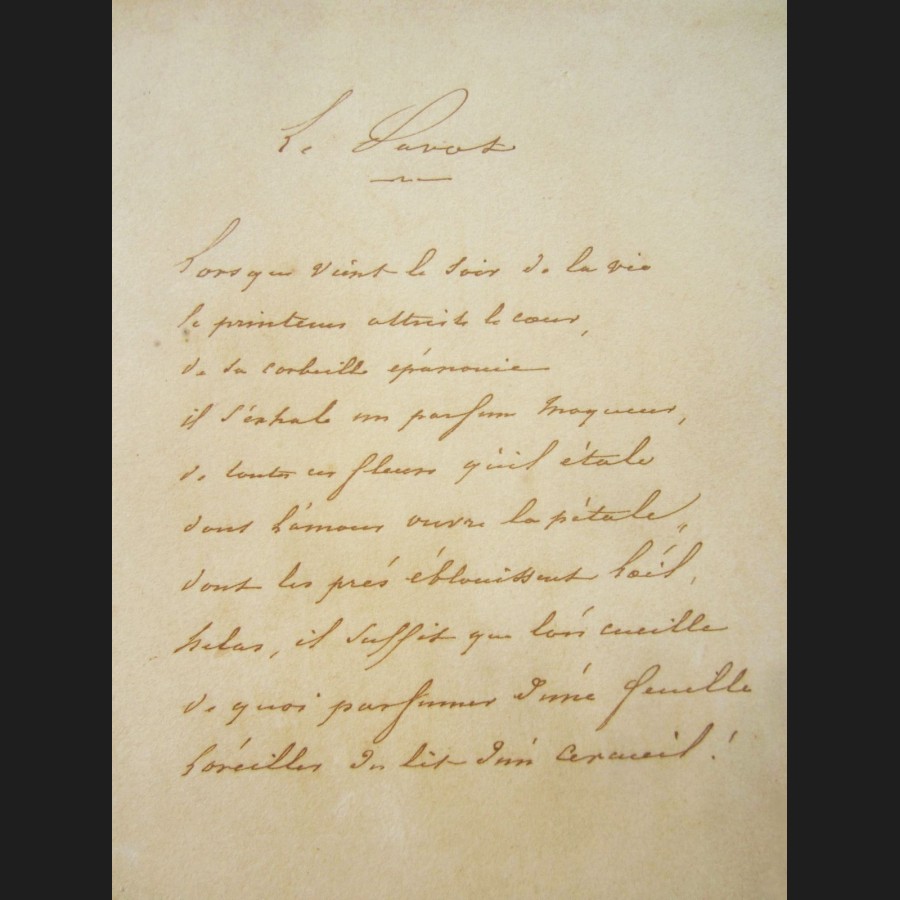 Le Pavot
Lorsque vient le soir de la vie
le printems attriste le cœur,
de sa corbeille épanouie
il s'exhale un parfum moqueur,
de toutes ces fleurs qu'il étale
dont l'amour ouvre la pétale,
dont les prés éblouissent l'œil,
helas, il suffit que l'on cueille
de quoi parfumer d'une feuille
l'oreiller du lit d'un cercueil !